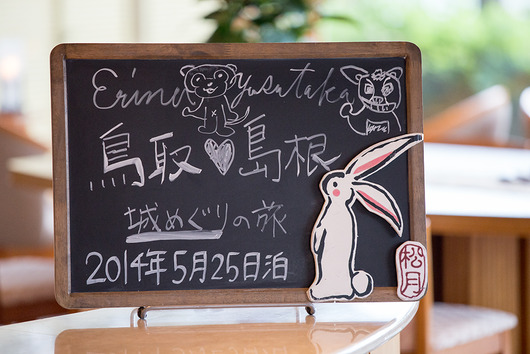 Erina Yasutaka
鳥取♥島根
城めぐりの旅
2014年5月25日泊
松月